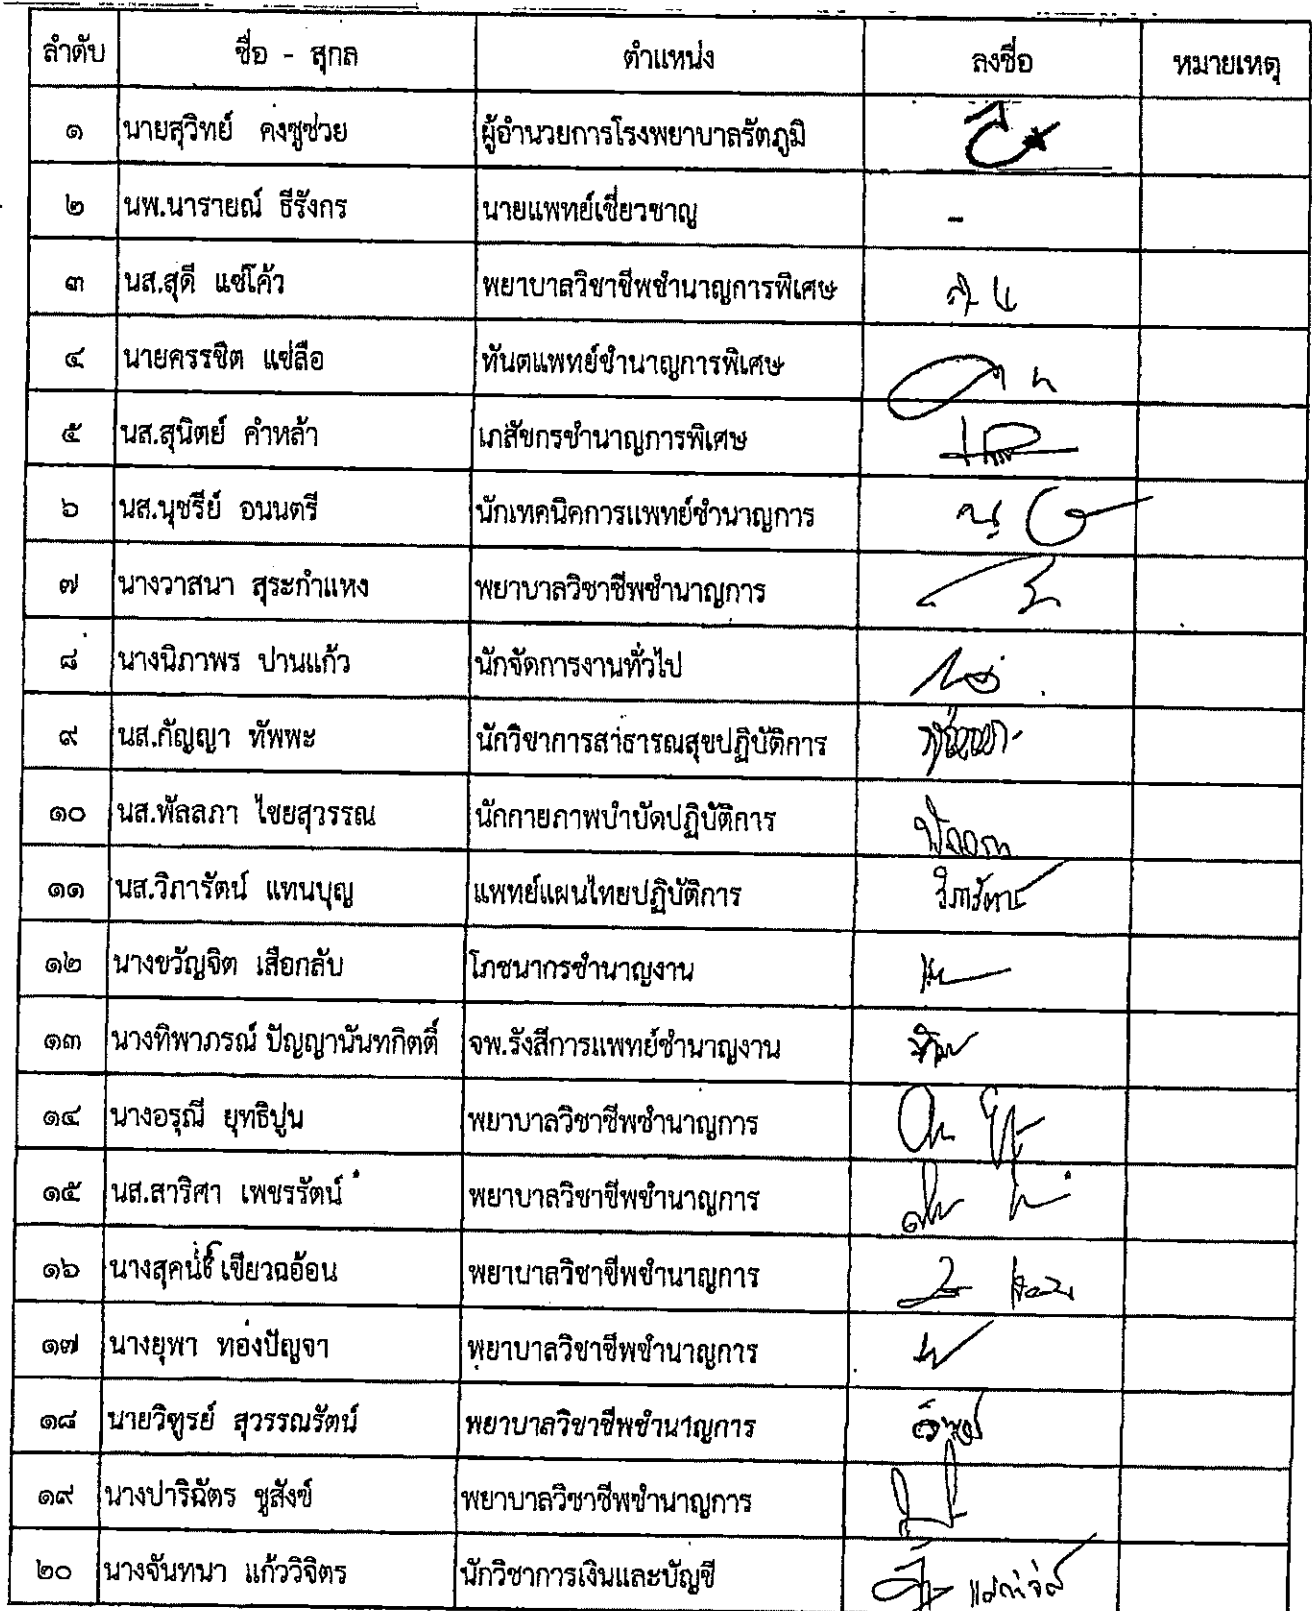 ลำดับ ชื่อ - สกุล ตำแหน่ง ลงชื่อ หมายเหตุ
๑ นายสุวิทย์ คงชูช่วย ผู้อำนวยการโรงพยาบาลรัตภูมิ
๒ นพ.นารายณ์ ธีรังกร นายแพทย์เชี่ยวชาญ -
๓ นส.สุดี แซ่โค้ว พยาบาลวิชาชีพชำนาญการพิเศษ
๔ นายครรชิต แซ่ลือ ทันตแพทย์ชำนาญการพิเศษ
๕ นส.สุนิตย์ คำหล้า เภสัชกรชำนาญการพิเศษ
๖ นส.นุชรีย์ อนนตรี นักเทคนิคการแพทย์ชำนาญการ
๗ นางวาสนา สุระกำแหง พยาบาลวิชาชีพชำนาญการ
๘ นางนิภาพร ปานแก้ว นักจัดการงานทั่วไป
๙ นส.กัญญา ทัพพะ นักวิชาการสาธารณสุขปฏิบัติการ
๑๐ นส.พัลลภา ไชยสุวรรณ นักกายภาพบำบัดปฏิบัติการ
๑๑ นส.วิภารัตน์ แทนบุญ แพทย์แผนไทยปฏิบัติการ วิภารัตน์
๑๒ นางขวัญจิต เสือกลับ โภชนากรชำนาญงาน
๑๓ นางทิพาภรณ์ ปัญญานันทกิตติ์ จพ.รังสีการแพทย์ชำนาญงาน
๑๔ นางอรุณี ยุทธิปูน พยาบาลวิชาชีพชำนาญการ
๑๕ นส.สาริศา เพชรรัตน์ พยาบาลวิชาชีพชำนาญการ
๑๖ เขียวฉอ้อน พยาบาลวิชาชีพชำนาญการ
๑๗ นางยุพา ทองปัญจา พยาบาลวิชาชีพชำนาญการ
๑๘ นายวิฑูรย์ สุวรรณรัตน์ พยาบาลวิชาชีพชำนาญการ
๑๙ นางปาริฉัตร ชูสังข์ พยาบาลวิชาชีพชำนาญการ
๒๐ นางจันทนา แก้ววิจิตร นักวิชาการเงินและบัญชี